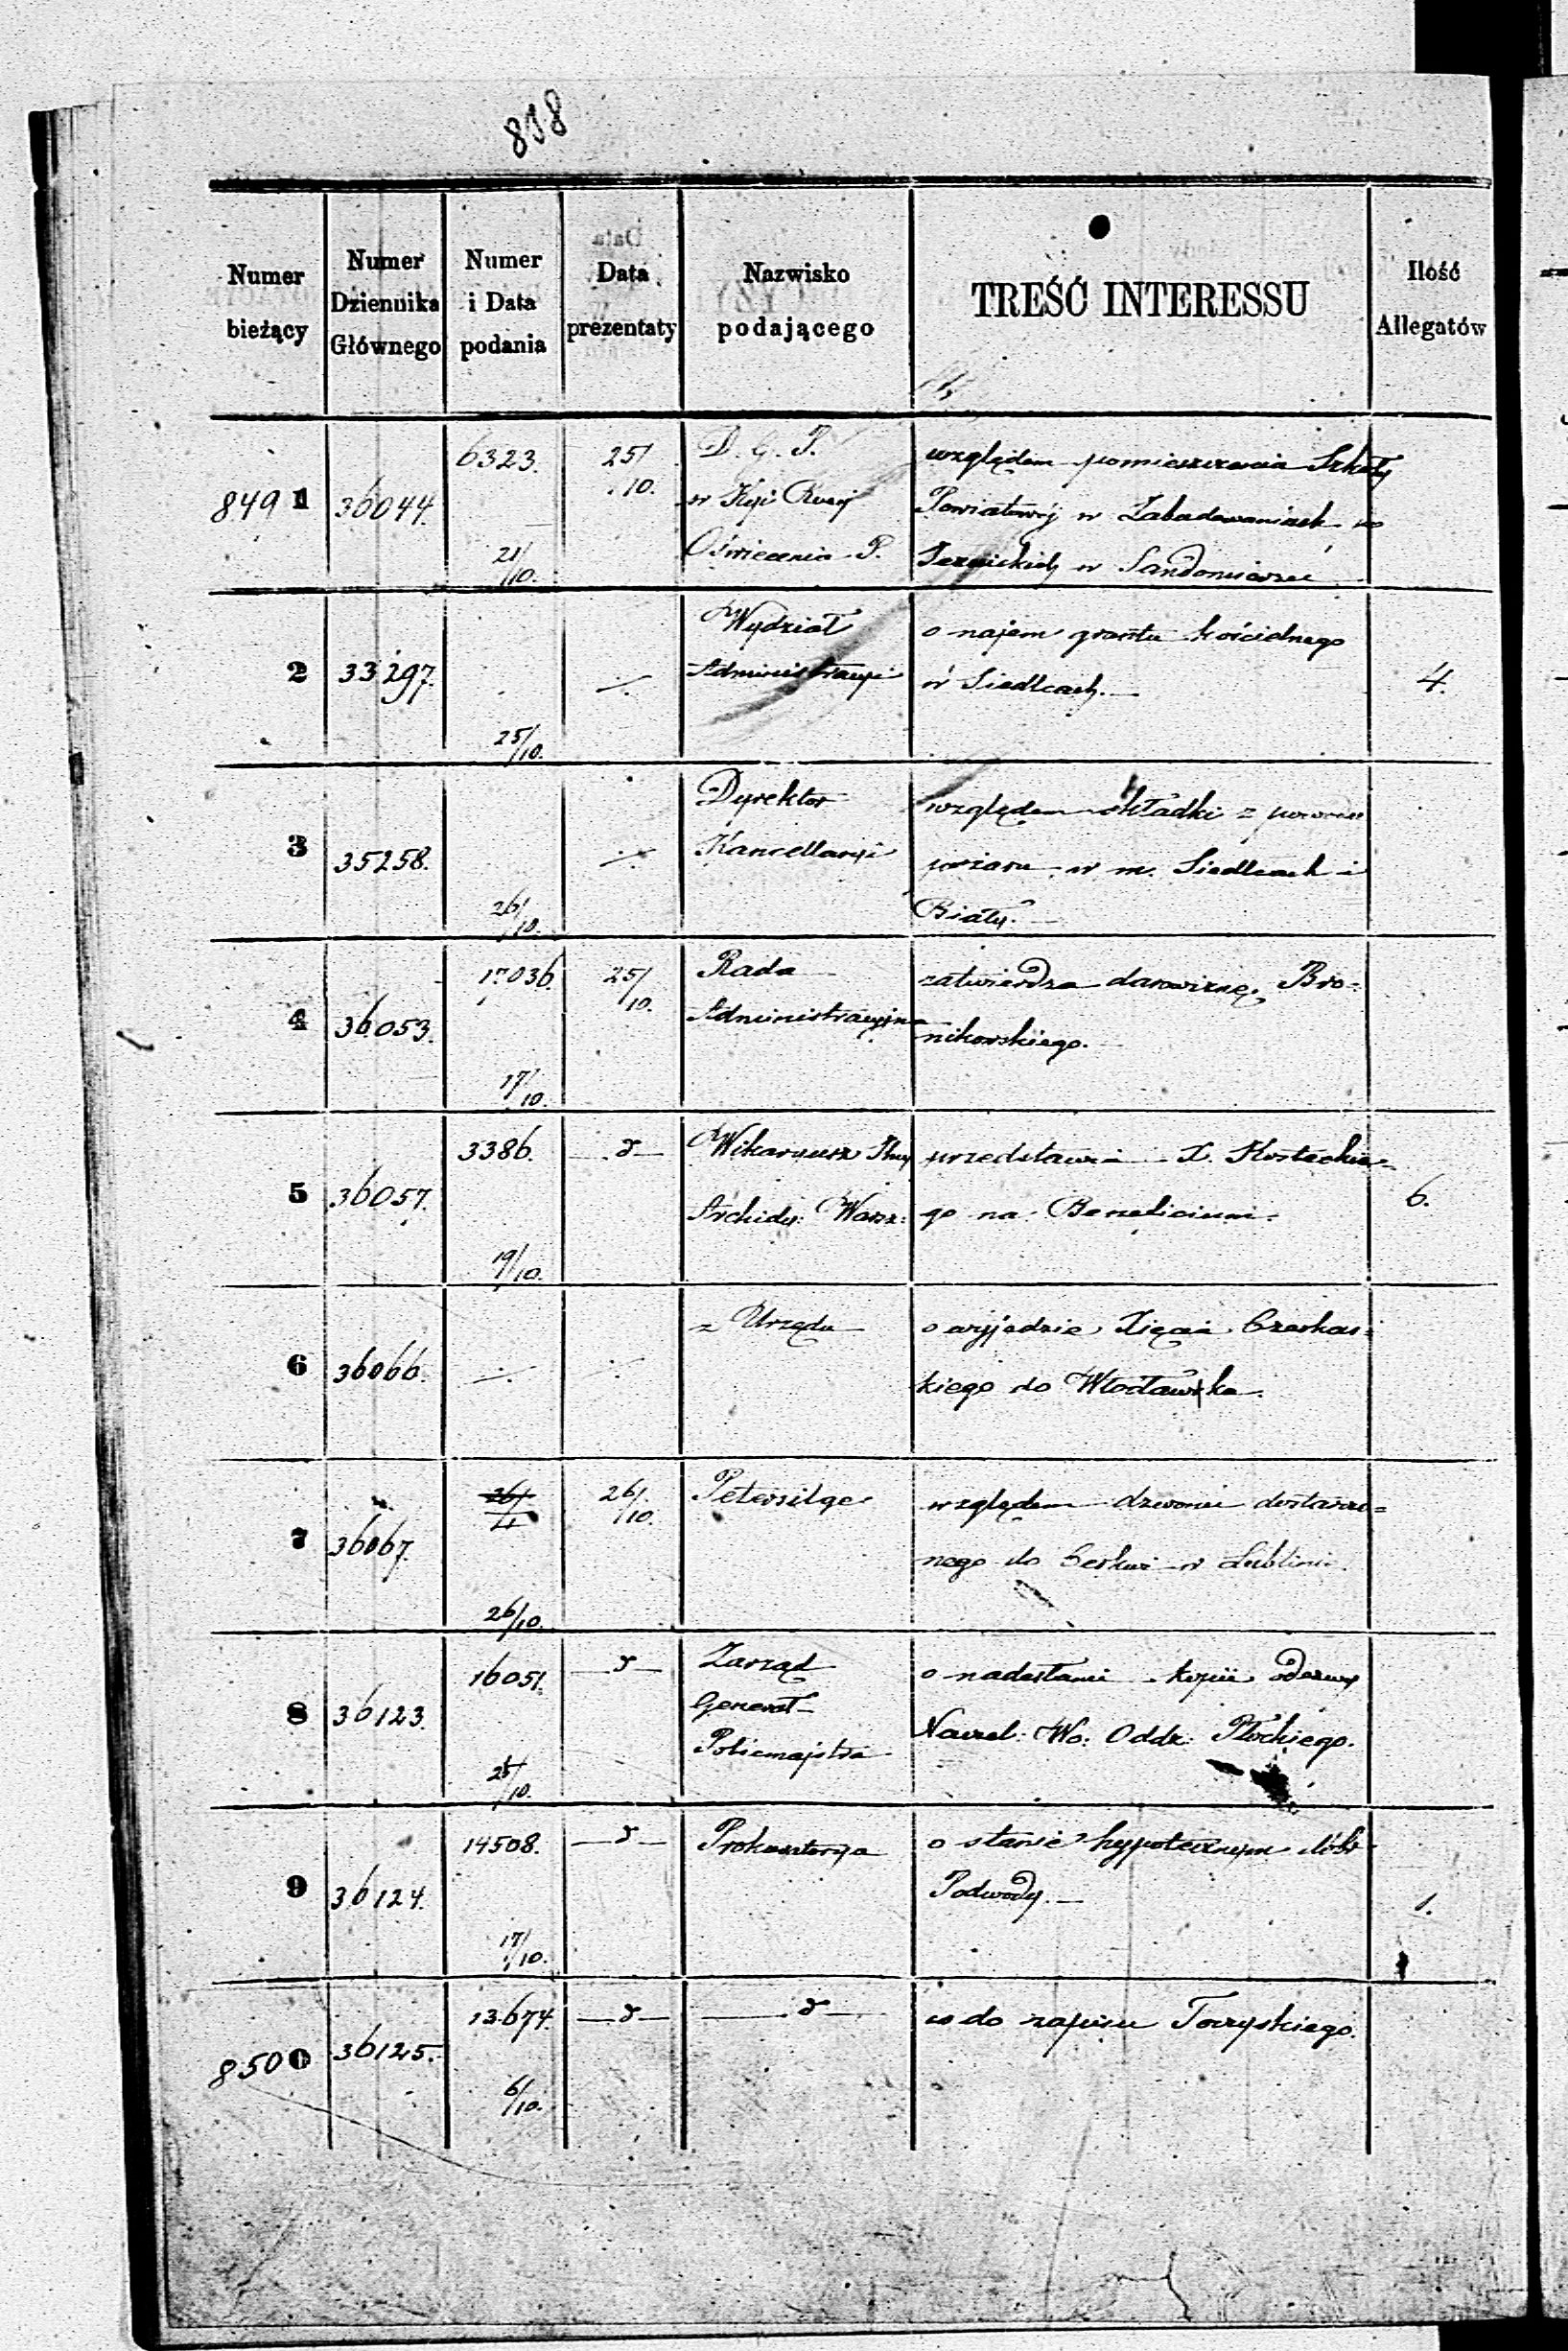 818
Numer bieżący | Numer Dziennika Głównego | Numer i Data podania | Data prezentaty | Nazwisko podającego | TREŚĆ INTERESSU | Ilość Allegatów
8491 | 36044. | 6323. 21/10. | 25/10. | D. G. P. w Kyi Rząd Oświecenia P. | względem pomieszczenia Szkoły Powiatowéj w Zabudowaniach po Jezuickich w Sandomierzu
2 | 33297. | 25/10. | ./. | Wydział Administracyi | o najem gruntu kościelnego w Siedlcach.— | 4.
3 | 35258. | 26/10. | ./. | Dyrektor Kancellaryi | względem składki z powodu pożaru w m. Siedlcach i Biały.—
4 | 36053. | 17036. 17/10. | 25/10. | Rada Administracyjna | zatwierdza darowiznę Bro= nikowskiego.—
5 | 36057. | 3386. 19/10. | —d— | Wikaryusz Archidy: Warsz: | przedstawia X. go na Beneficium. | 6.
6 | 36066. | ./. | ./. | z Urzędu | o wyjeździe Xięcia Czerkas= kiego do Włocławka.
7 | 36067. | 26/10. | 26/10. | Petersilge | względem dzwonu dostarczo= nego do Cerkwi w Lublinie.
8 | 36123. | 16051. 25/10. | —d— | Zarząd Generał- Policmajstra | o nadesłanie kopii odezwy Naczel: Wo: Oddz: Płockiego.
9 | 36124. | 14508. 17/10. | —d— | Prokuratorya | o stanie hypotecznym dóbr Podwody.— | 1.
8500 | 36125. | 13674. 6/10. | —d— | —d— | co do zapisu Toczyskiego.